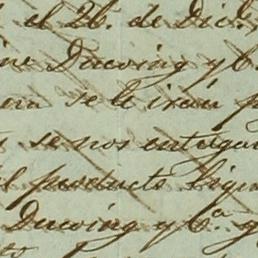 el 26. de Dic
Duwing y C
se le irán p
se nos entregar
el producto liqu
Duwing y Cª. g